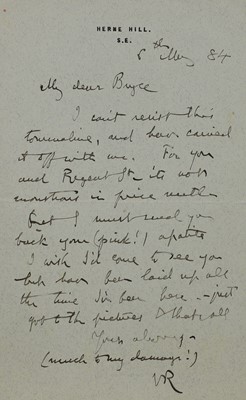 HERNE HILL,
S.E.
5th May 84
My dear Bryce
I can't resist this
tourmaline, and have carried
it off with me. For you
and Regent St its not
monstrous in price neither
but I must send you
back your (pink!) apatite
I wish I'd come to see you
but have been laid up all
the time I've been here - just
got to the pictures & that's all
Yours always
(much to my damage!)
JR